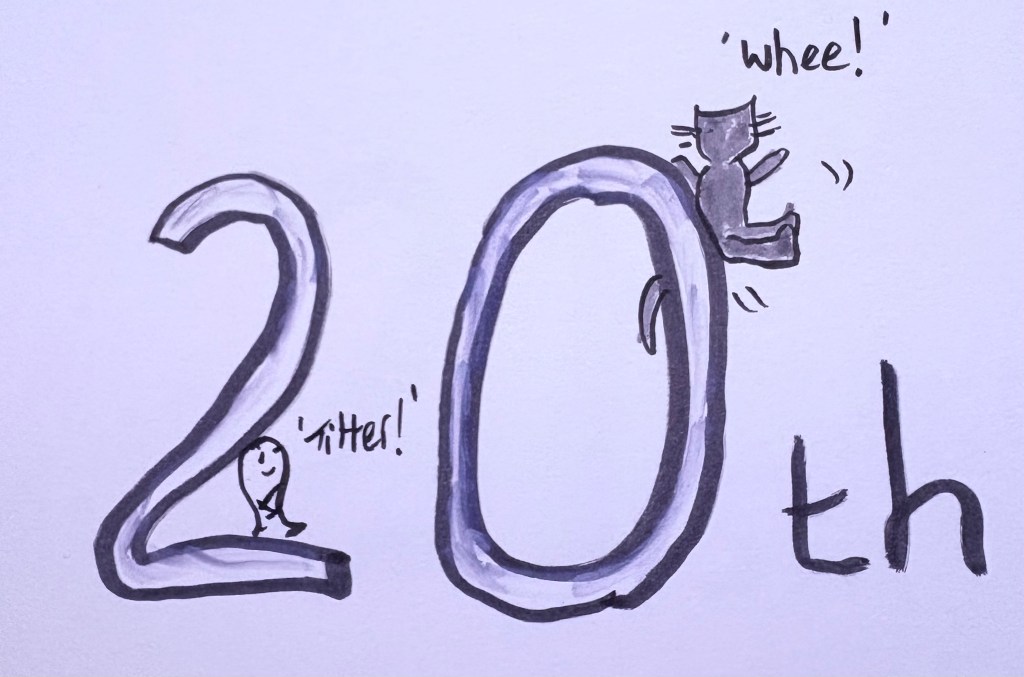 'whee!'
20th
'Titter!'